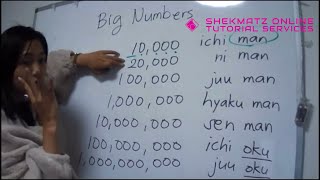 SHEKMATZ ONLINE
TUTORIAL SERVICES
Big Numbers
10,000 ichi man
20,000 ni man
100,000 juu man
1,000,000 hyaku man
10,000,000 sen man
100,000,000 ichi oku
1,000,000,000 juu oku